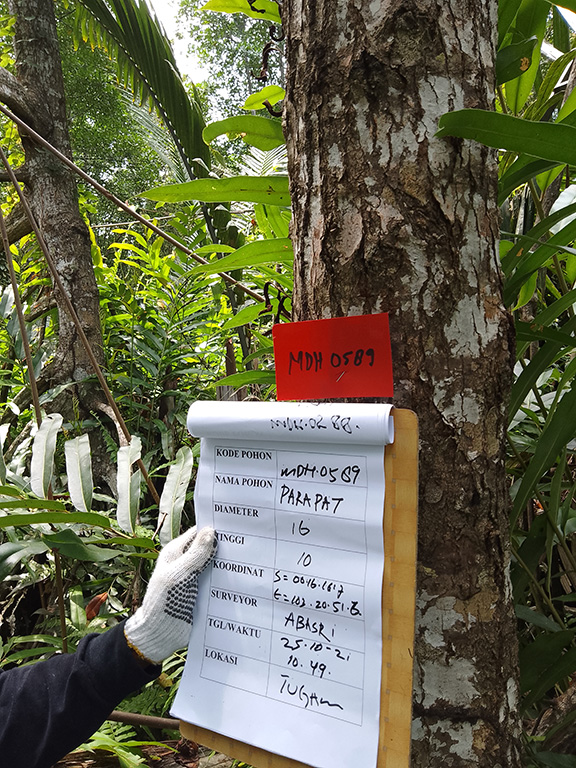 MDH 0589
KODE POHON MDH.0589
NAMA POHON PARAPAT
DIAMETER 16
TINGGI 10
KOORDINAT S = 00.16.161.7
E = 103.20.51.8
SURVEYOR ABASRI
TGL/WAKTU 25-10-21
10.49.
LOKASI